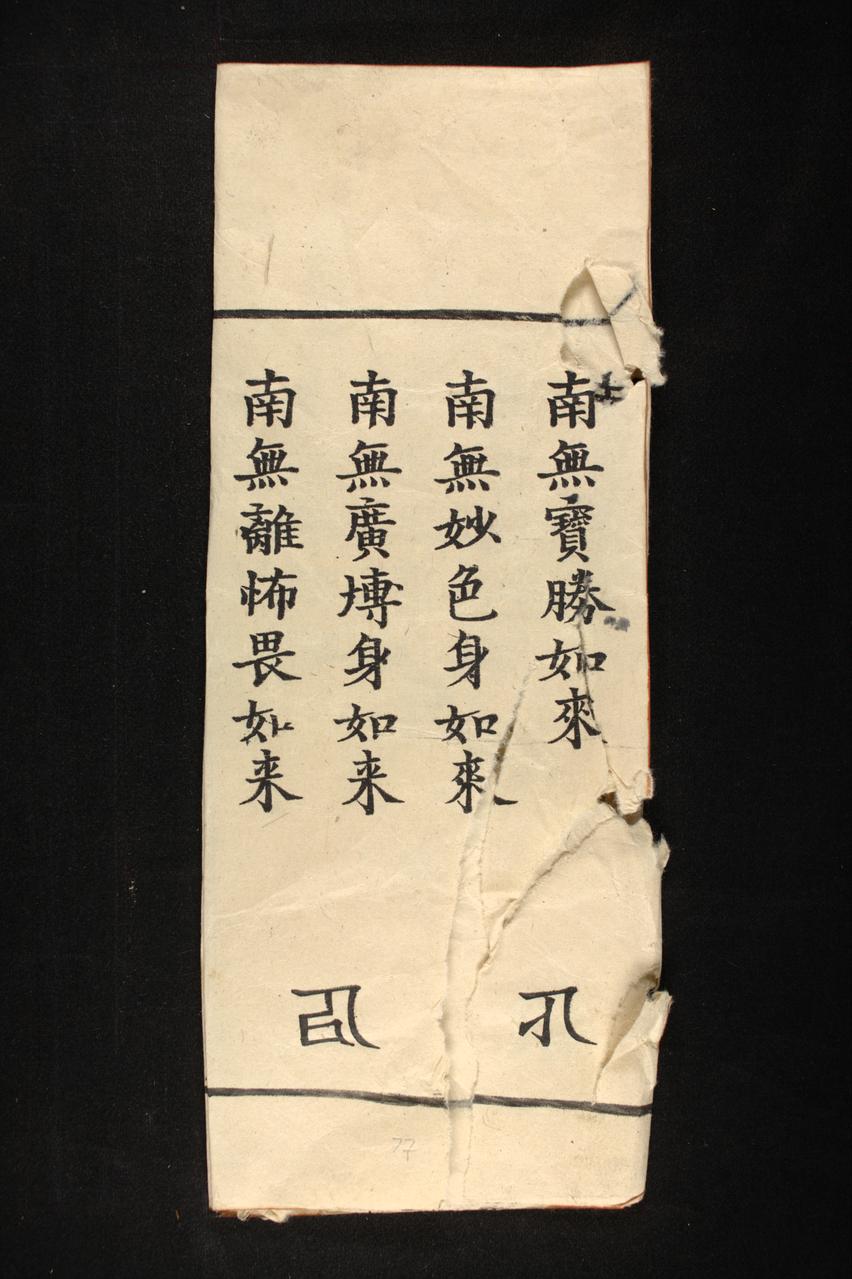 南無寶勝如來
南無妙色身如來
南無廣塼身如来
南無離怖畏如来
77